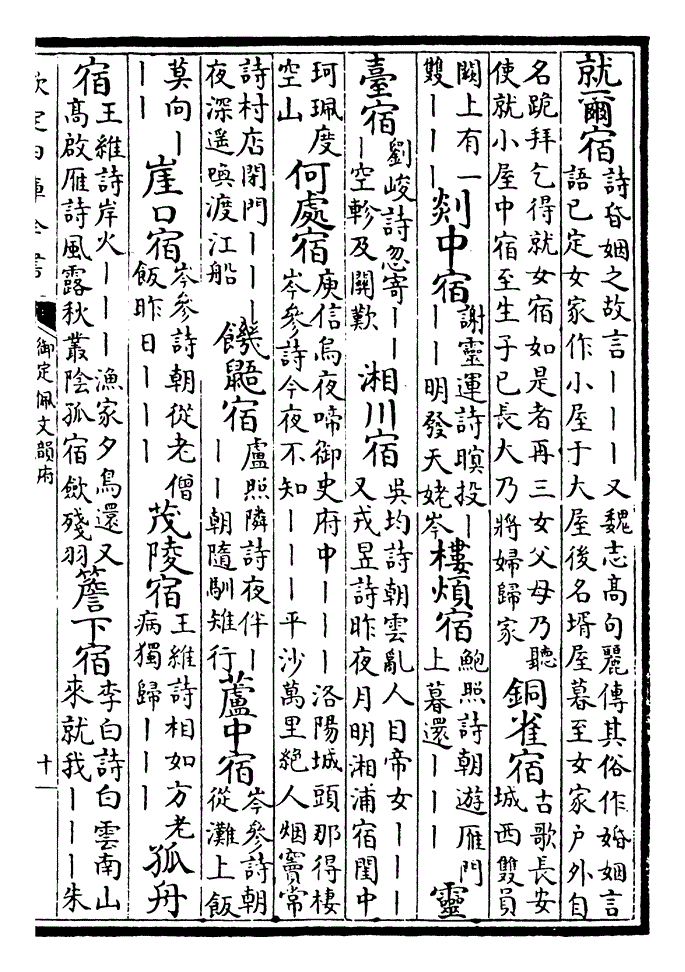 就爾宿
詩昏姻之故言丨丨丨又魏志高句麗傳其俗作婚姻言
語已定女家作小屋于大屋後名壻屋暮至女家户外自
名跪拜乞得就女宿如是者再三女父母乃聽
使就小屋中宿至生子已長大乃將婦歸家
銅雀宿
古歌長安
城西雙員
闕上有一
雙丨丨丨
剡中宿
謝靈運詩暝投丨
丨丨明發天姥岑
樓煩宿
鮑照詩朝遊雁門
上暮還丨丨丨
靈
臺宿
劉峻詩忽寄丨丨
丨空軫及關歎
湘川宿
吳均詩朝雲亂人目帝女丨丨丨
又戎昱詩昨夜月明湘浦宿閨中
珂珮度
空山
何處宿
庾信烏夜啼御史府中丨丨丨洛陽城頭那得棲
岑參詩今夜不知丨丨丨平沙萬里絕人烟竇常
詩村店閉門丨丨丨
夜深遥喚渡江船
饑鼯宿
盧照隣詩夜伴丨
丨丨朝隨馴雉行
蘆中宿
岑參詩朝
從灘上飯
莫向丨
丨丨
崖口宿
岑參詩朝從老僧
飯昨日丨丨丨
茂陵宿
王維詩相如方老
病獨歸丨丨丨
孤舟
宿
王維詩岸火丨丨丨漁家夕鳥還又
高啟雁詩風露秋叢陰孤宿斂殘羽
簷下宿
李白詩白雲南山
來就我丨丨丨朱
欽定四庫全書
御定佩文韻府
十